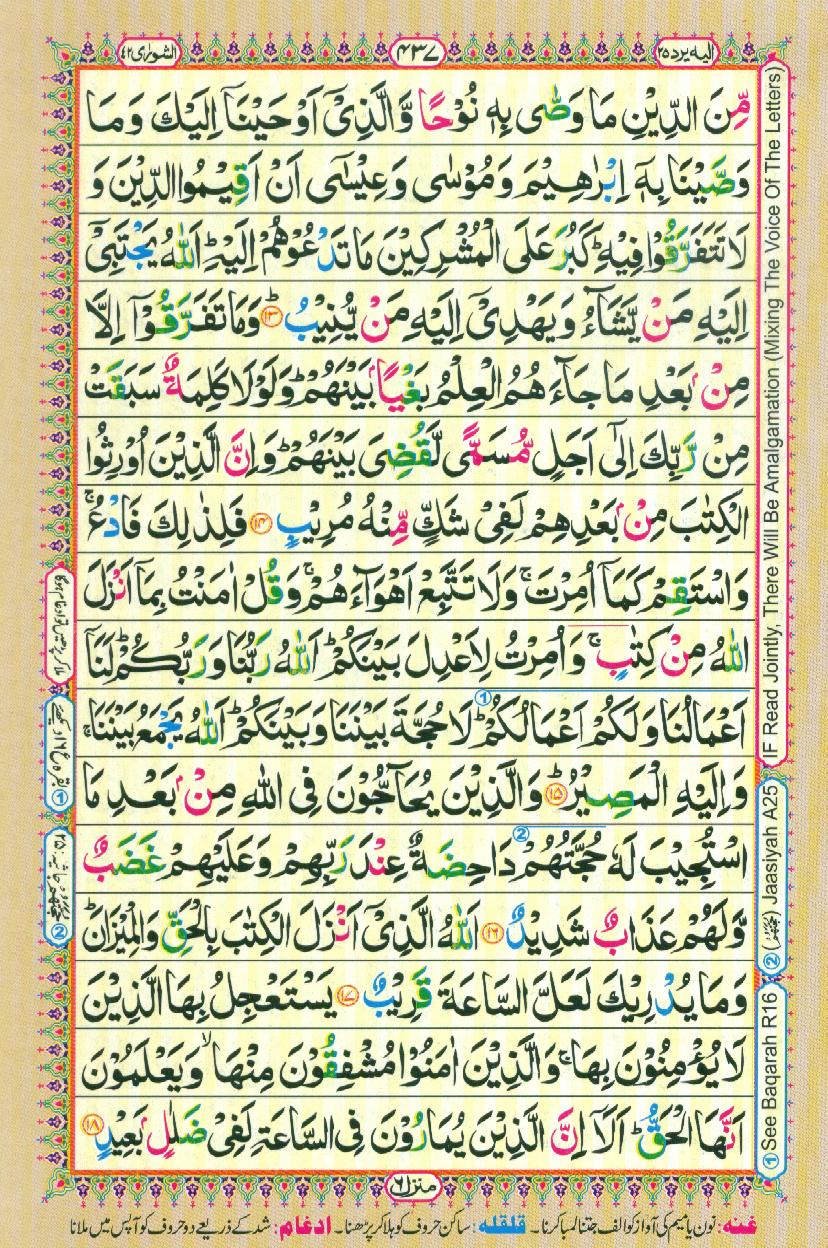 الیہ یرد ۲۵
۴۳۷
الشورٰی ۴۲
مِّنَ الدِّيْنِ مَا وَصّٰى بِهٖ نُوْحًا وَّالَّذِيْٓ اَوْحَيْنَآ اِلَيْكَ وَمَا
وَصَّيْنَا بِهٖٓ اِبْرٰهِيْمَ وَمُوْسٰى وَعِيْسٰٓى اَنْ اَقِيْمُوا الدِّيْنَ وَ
لَا تَتَفَرَّقُوْا فِيْهِ ؕ كَبُرَ عَلَى الْمُشْرِكِيْنَ مَا تَدْعُوْهُمْ اِلَيْهِ ؕ اَللّٰهُ يَجْتَبِيْٓ
اِلَيْهِ مَنْ يَّشَآءُ وَيَهْدِيْٓ اِلَيْهِ مَنْ يُّنِيْبُ ؕ ۱۳ وَمَا تَفَرَّقُوْٓا اِلَّا
مِنْۢ بَعْدِ مَا جَآءَهُمُ الْعِلْمُ بَغْيًاۢ بَيْنَهُمْ ؕ وَلَوْلَا كَلِمَةٌ سَبَقَتْ
مِنْ رَّبِّكَ اِلٰٓى اَجَلٍ مُّسَمًّى لَّقُضِيَ بَيْنَهُمْ ؕ وَاِنَّ الَّذِيْنَ اُوْرِثُوا
الْكِتٰبَ مِنْۢ بَعْدِهِمْ لَفِيْ شَكٍّ مِّنْهُ مُرِيْبٍ ۱۴ فَلِذٰلِكَ فَادْعُ ۚ
وَاسْتَقِمْ كَمَآ اُمِرْتَ ۚ وَلَا تَتَّبِعْ اَهْوَآءَهُمْ ۚ وَقُلْ اٰمَنْتُ بِمَآ اَنْزَلَ
اللّٰهُ مِنْ كِتٰبٍ ۚ وَاُمِرْتُ لِاَعْدِلَ بَيْنَكُمْ ؕ اَللّٰهُ رَبُّنَا وَرَبُّكُمْ ؕ لَنَآ
اَعْمَالُنَا وَلَكُمْ اَعْمَالُكُمْ ؕ ① لَا حُجَّةَ بَيْنَنَا وَبَيْنَكُمْ ؕ اَللّٰهُ يَجْمَعُ بَيْنَنَا ۚ
وَاِلَيْهِ الْمَصِيْرُ ؕ ۱۵ وَالَّذِيْنَ يُحَآجُّوْنَ فِي اللّٰهِ مِنْۢ بَعْدِ مَا
اسْتُجِيْبَ لَهٗ حُجَّتُهُمْ ② دَاحِضَةٌ عِنْدَ رَبِّهِمْ وَعَلَيْهِمْ غَضَبٌ
وَّلَهُمْ عَذَابٌ شَدِيْدٌ ۱۶ اَللّٰهُ الَّذِيْٓ اَنْزَلَ الْكِتٰبَ بِالْحَقِّ وَالْمِيْزَانَ ؕ
وَمَا يُدْرِيْكَ لَعَلَّ السَّاعَةَ قَرِيْبٌ ۱۷ يَسْتَعْجِلُ بِهَا الَّذِيْنَ
لَا يُؤْمِنُوْنَ بِهَا ۚ وَالَّذِيْنَ اٰمَنُوْا مُشْفِقُوْنَ مِنْهَا ۙ وَيَعْلَمُوْنَ
اَنَّهَا الْحَقُّ ؕ اَلَآ اِنَّ الَّذِيْنَ يُمَارُوْنَ فِي السَّاعَةِ لَفِيْ ضَلٰلٍۢ بَعِيْدٍ ۱۸
منزل ۶
غنہ: نون یا میم کی آواز کو الف جتنا لمبا کرنا۔ قلقلہ: ساکن حروف کو ہلا کر پڑھنا۔ ادغام: شد کے ذریعے دو حروف کو آپس میں ملانا
IF Read Jointly, There Will Be Amalgamation (Mixing The Voice Of The Letters)
② Jaasiyah A25
① See Baqarah R16